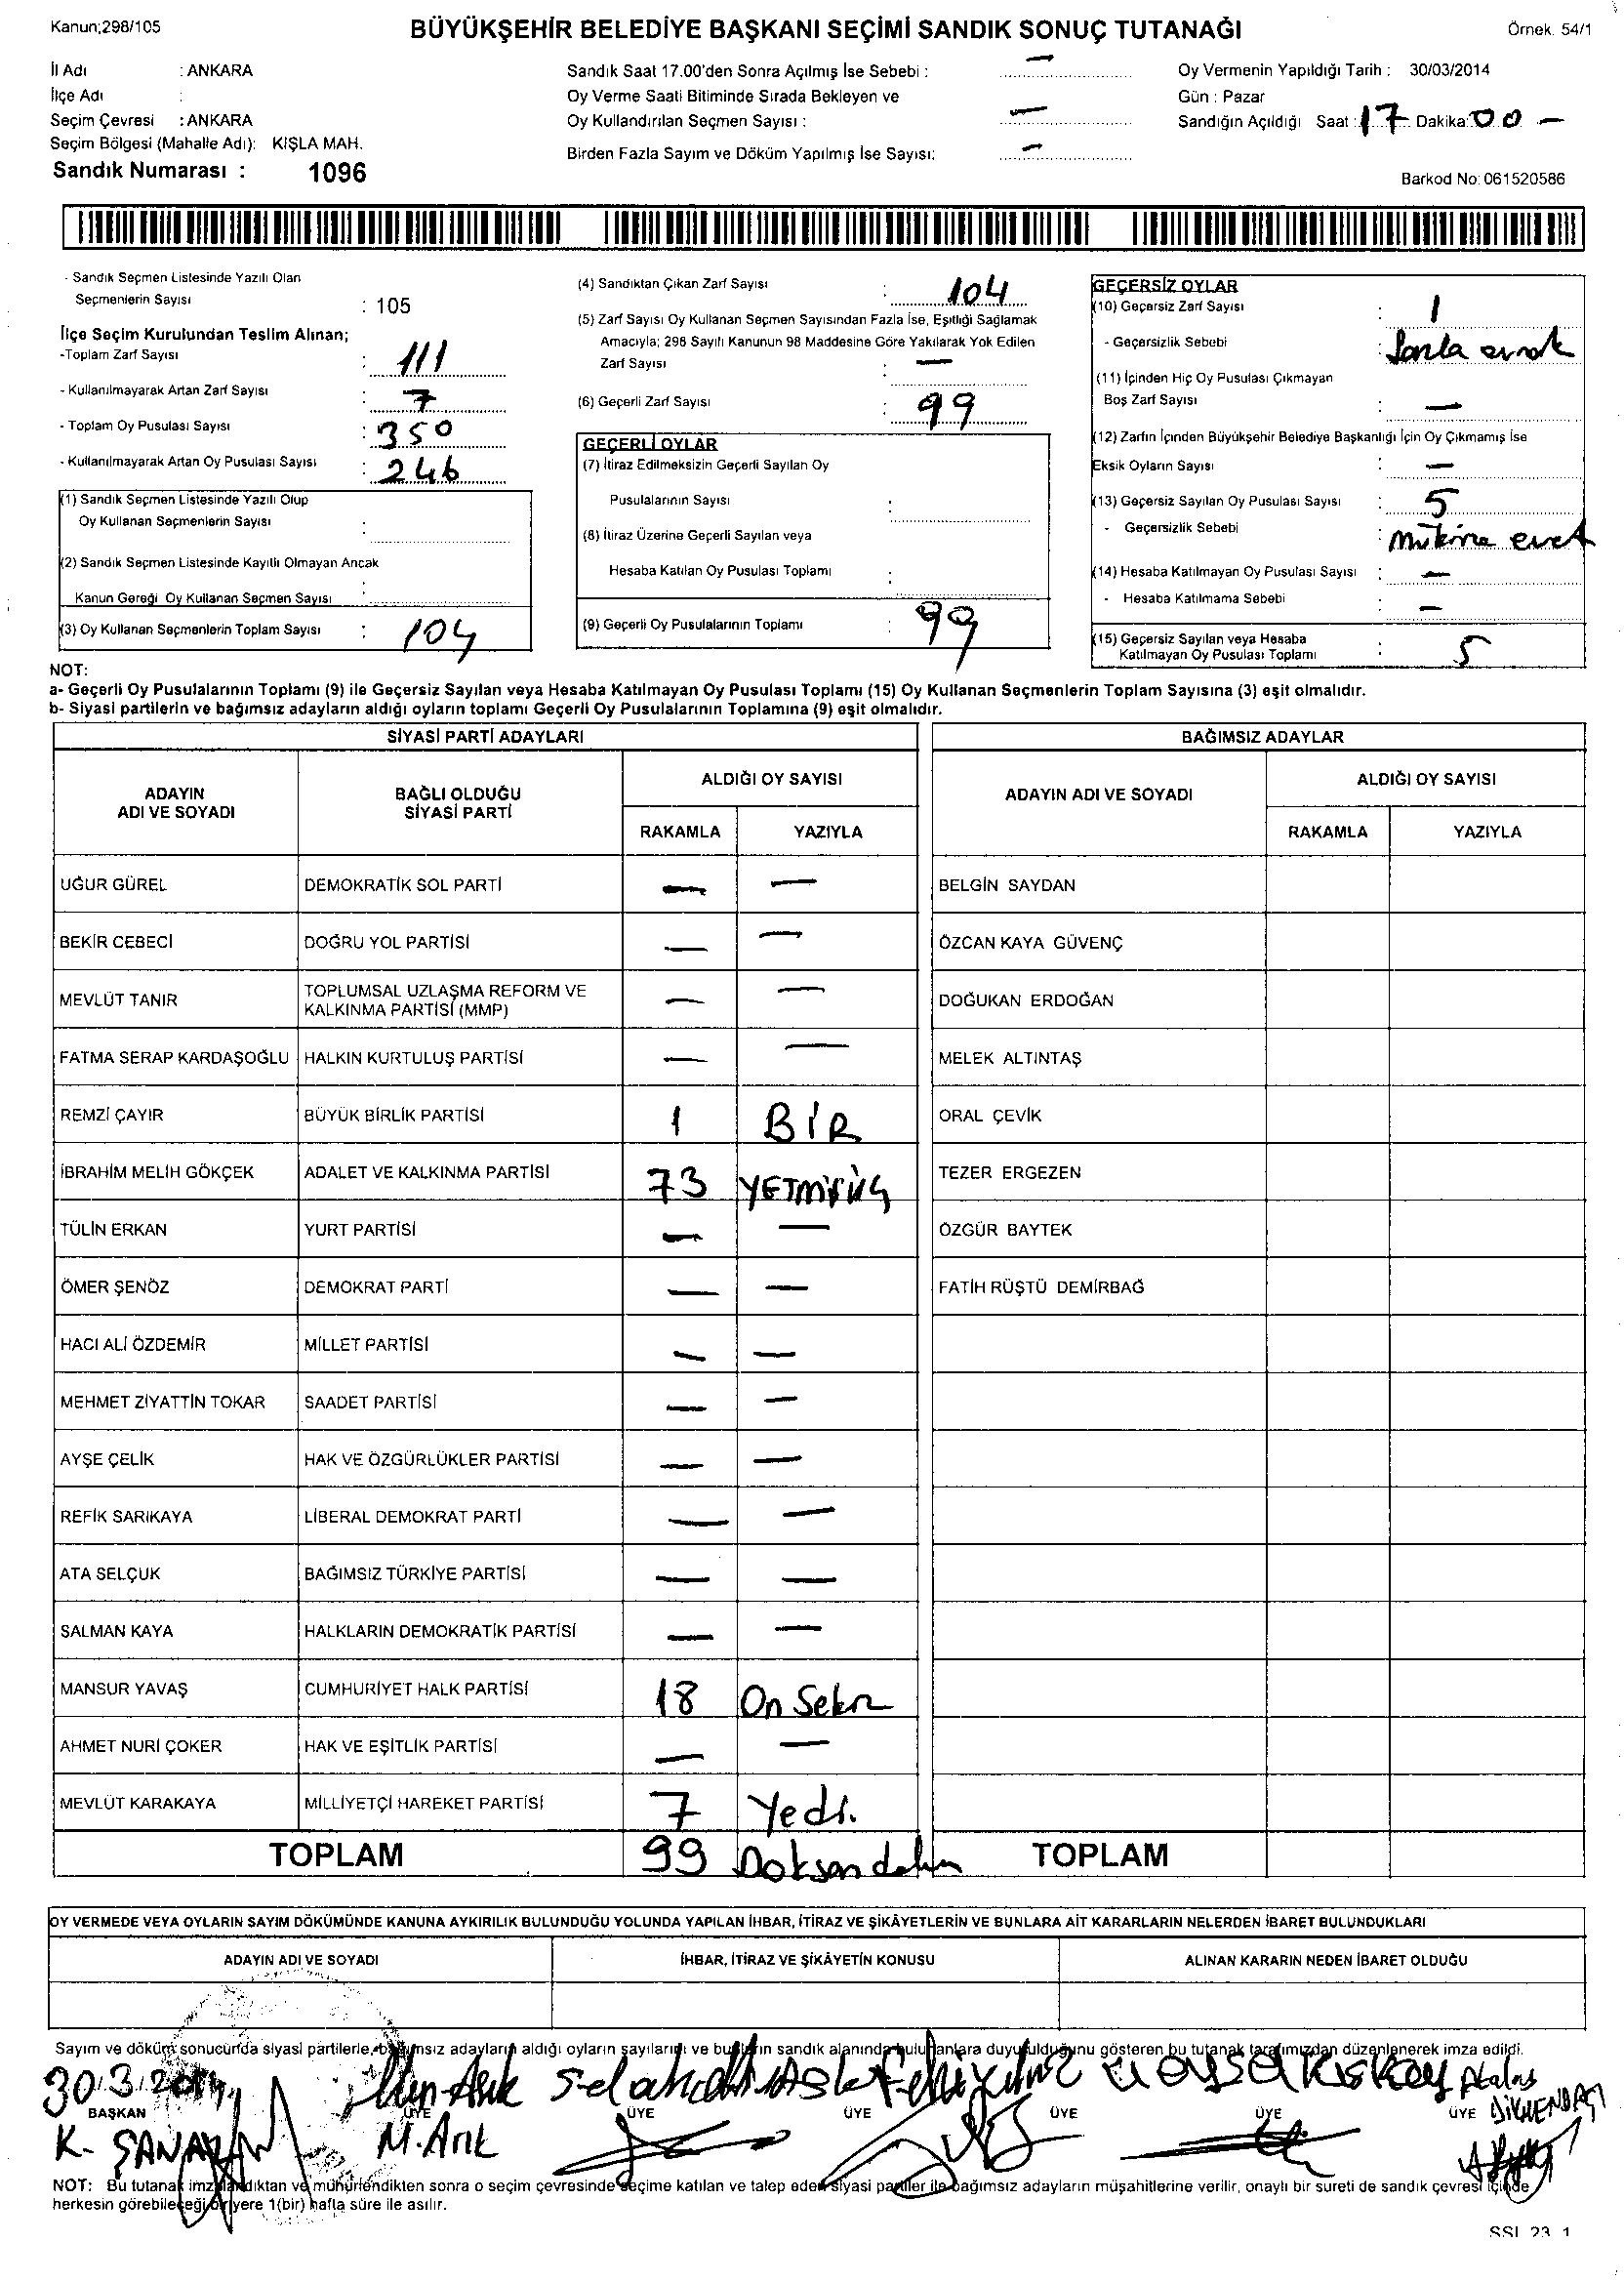 Kanun;298/105
BÜYÜKŞEHİR BELEDİYE BAŞKANI SEÇİMİ SANDIK SONUÇ TUTANAĞI
Örnek. 54/1
İl Adı : ANKARA
İlçe Adı :
Seçim Çevresi : ANKARA
Seçim Bölgesi (Mahalle Adı): KIŞLA MAH.
Sandık Numarası : 1096
Sandık Saat 17.00'den Sonra Açılmış İse Sebebi : —
Oy Verme Saati Bitiminde Sırada Bekleyen ve
Oy Kullandırılan Seçmen Sayısı : —
Birden Fazla Sayım ve Döküm Yapılmış İse Sayısı: —
Oy Vermenin Yapıldığı Tarih : 30/03/2014
Gün : Pazar
Sandığın Açıldığı Saat : 17 Dakika: 00 —
Barkod No: 061520586
- Sandık Seçmen Listesinde Yazılı Olan
Seçmenlerin Sayısı : 105
İlçe Seçim Kurulundan Teslim Alınan;
-Toplam Zarf Sayısı : 111
- Kullanılmayarak Artan Zarf Sayısı : 7
- Toplam Oy Pusulası Sayısı : 350
- Kullanılmayarak Artan Oy Pusulası Sayısı : 246
(1) Sandık Seçmen Listesinde Yazılı Olup
Oy Kullanan Seçmenlerin Sayısı :
(2) Sandık Seçmen Listesinde Kayıtlı Olmayan Ancak
Kanun Gereği Oy Kullanan Seçmen Sayısı :
(3) Oy Kullanan Seçmenlerin Toplam Sayısı : 104
(4) Sandıktan Çıkan Zarf Sayısı : 104
(5) Zarf Sayısı Oy Kullanan Seçmen Sayısından Fazla İse, Eşitliği Sağlamak
Amacıyla; 298 Sayılı Kanunun 98 Maddesine Göre Yakılarak Yok Edilen
Zarf Sayısı : —
(6) Geçerli Zarf Sayısı : 99
GEÇERLİ OYLAR
(7) İtiraz Edilmeksizin Geçerli Sayılan Oy
Pusulalarının Sayısı :
(8) İtiraz Üzerine Geçerli Sayılan veya
Hesaba Katılan Oy Pusulası Toplamı :
(9) Geçerli Oy Pusulalarının Toplamı : 99
GEÇERSİZ OYLAR
(10) Geçersiz Zarf Sayısı : 1
- Geçersizlik Sebebi :
(11) İçinden Hiç Oy Pusulası Çıkmayan
Boş Zarf Sayısı : —
(12) Zarfın İçinden Büyükşehir Belediye Başkanlığı İçin Oy Çıkmamış İse
Eksik Oyların Sayısı : —
(13) Geçersiz Sayılan Oy Pusulası Sayısı : 5
- Geçersizlik Sebebi :
(14) Hesaba Katılmayan Oy Pusulası Sayısı : —
- Hesaba Katılmama Sebebi : —
(15) Geçersiz Sayılan veya Hesaba
Katılmayan Oy Pusulası Toplamı : 5
NOT:
a- Geçerli Oy Pusulalarının Toplamı (9) ile Geçersiz Sayılan veya Hesaba Katılmayan Oy Pusulası Toplamı (15) Oy Kullanan Seçmenlerin Toplam Sayısına (3) eşit olmalıdır.
b- Siyasi partilerin ve bağımsız adayların aldığı oyların toplamı Geçerli Oy Pusulalarının Toplamına (9) eşit olmalıdır.
SİYASİ PARTİ ADAYLARI
ADAYIN ADI VE SOYADI
BAĞLI OLDUĞU SİYASİ PARTİ
ALDIĞI OY SAYISI
RAKAMLA YAZIYLA
UĞUR GÜREL DEMOKRATİK SOL PARTİ — —
BEKİR CEBECİ DOĞRU YOL PARTİSİ — —
MEVLÜT TANIR TOPLUMSAL UZLAŞMA REFORM VE KALKINMA PARTİSİ (MMP) — —
FATMA SERAP KARDAŞOĞLU HALKIN KURTULUŞ PARTİSİ — —
REMZİ ÇAYIR BÜYÜK BİRLİK PARTİSİ 1 BİR
İBRAHİM MELİH GÖKÇEK ADALET VE KALKINMA PARTİSİ 73 YETMİŞÜÇ
TÜLİN ERKAN YURT PARTİSİ — —
ÖMER ŞENÖZ DEMOKRAT PARTİ — —
HACI ALİ ÖZDEMİR MİLLET PARTİSİ — —
MEHMET ZİYATTİN TOKAR SAADET PARTİSİ — —
AYŞE ÇELİK HAK VE ÖZGÜRLÜKLER PARTİSİ — —
REFİK SARIKAYA LİBERAL DEMOKRAT PARTİ — —
ATA SELÇUK BAĞIMSIZ TÜRKİYE PARTİSİ — —
SALMAN KAYA HALKLARIN DEMOKRATİK PARTİSİ — —
MANSUR YAVAŞ CUMHURİYET HALK PARTİSİ 18 On Sekiz
AHMET NURİ ÇOKER HAK VE EŞİTLİK PARTİSİ — —
MEVLÜT KARAKAYA MİLLİYETÇİ HAREKET PARTİSİ 7 Yedi.
TOPLAM 99 Doksan dokuz
BAĞIMSIZ ADAYLAR
ADAYIN ADI VE SOYADI
ALDIĞI OY SAYISI
RAKAMLA YAZIYLA
BELGİN SAYDAN
ÖZCAN KAYA GÜVENÇ
DOĞUKAN ERDOĞAN
MELEK ALTINTAŞ
ORAL ÇEVİK
TEZER ERGEZEN
ÖZGÜR BAYTEK
FATİH RÜŞTÜ DEMİRBAĞ
TOPLAM
OY VERMEDE VEYA OYLARIN SAYIM DÖKÜMÜNDE KANUNA AYKIRILIK BULUNDUĞU YOLUNDA YAPILAN İHBAR, İTİRAZ VE ŞİKÂYETLERİN VE BUNLARA AİT KARARLARIN NELERDEN İBARET BULUNDUKLARI
ADAYIN ADI VE SOYADI
İHBAR, İTİRAZ VE ŞİKÂYETİN KONUSU
ALINAN KARARIN NEDEN İBARET OLDUĞU
Sayım ve döküm sonucunda siyasi partilerle, bağımsız adayların aldığı oyların sayılarını ve bunların sandık alanında bulunanlara duyurulduğunu gösteren bu tutanak tarafımızdan düzenlenerek imza edildi.
30.3.2014
BAŞKAN ÜYE ÜYE ÜYE ÜYE ÜYE ÜYE
M. Arık
NOT: Bu tutanak imzalandıktan ve mühürlendikten sonra o seçim çevresinde seçime katılan ve talep eden siyasi partiler ile bağımsız adayların müşahitlerine verilir, onaylı bir sureti de sandık çevresi içinde
herkesin görebileceği bir yere 1(bir) hafta süre ile asılır.